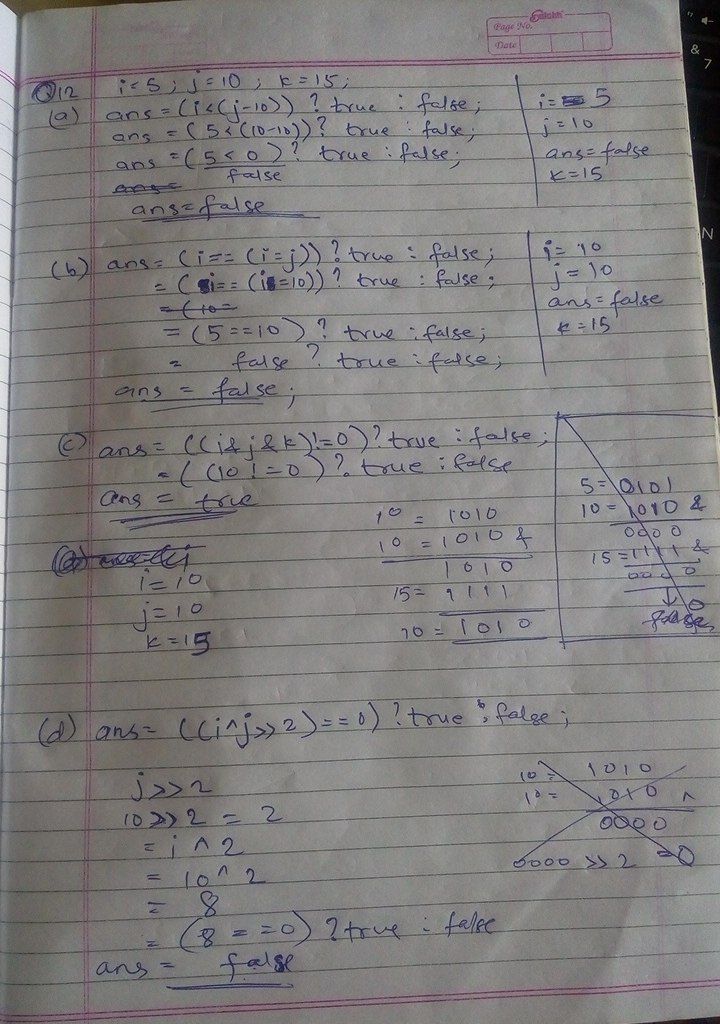 Page No.
Date
Q12 i=5; j=10; k=15;
(a) ans = (i<(j-10)) ? true : false;
ans = (5<(10-10))? true : false;
ans = (5<0)? true : false;
false
ans=
ans=false
i= 5
j=10
ans=false
k=15
(b) ans= (i== (i=j))? true : false;
= (i== (i=10))? true : false;
= (10=
= (5==10) ? true : false;
= false ? true : false;
ans = false;
i= 10
j=10
ans=false
k=15
(c) ans= ((i&j&k)!=0)? true : false;
= ( (10!=0)? true : false
ans = true
i=10
j=10
k=15
10 = 1010
10 = 1010 &
1010
15= 1111
10 = 1010
5= 0101
10= 1010 &
0000
15=1111 &
0000
↓ 0
false
(d) ans= ((i^j>>2)==0) ? true : false;
j>>2
10>>2 = 2
= i ^ 2
= 10^2
= 8
= (8 ==0) ? true : false
ans = false
10= 1010
10= 1010 ^
0000
0000 >> 2 =0
&
7
N